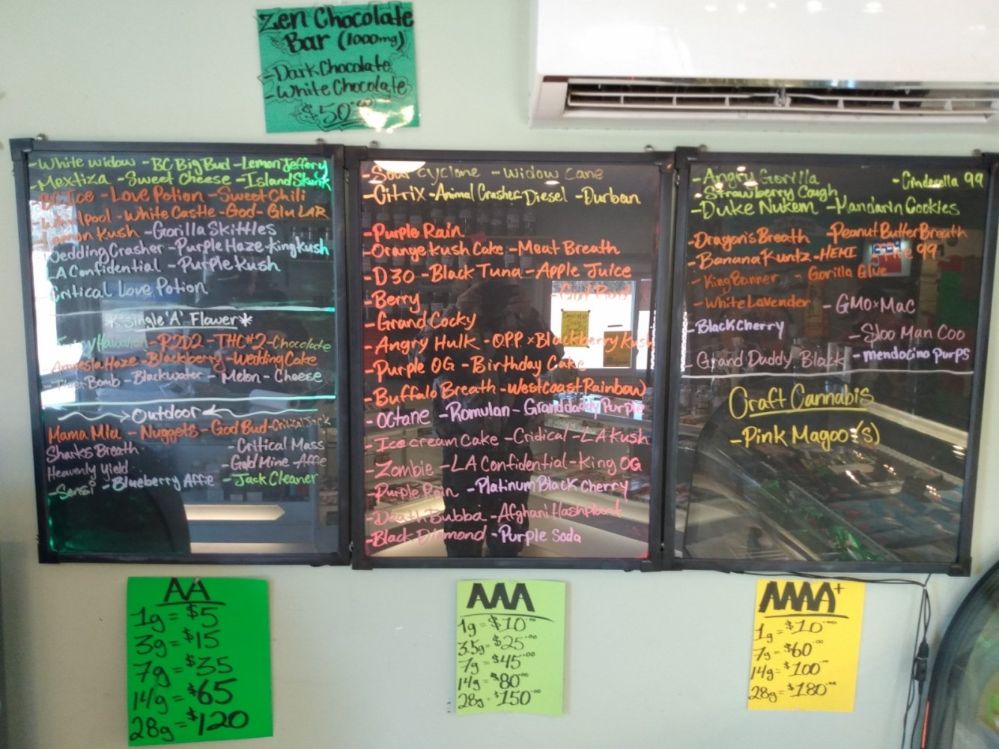 Zen Chocolate
Bar (1000mg)
-Dark Chocolate
-White Chocolate
$50.00
-White widow -BC Big Bud -Lemon Jeffery
Mextiza -Sweet Cheese -Island Skunk
Ice -Love Potion -Sweet Chili
-White Castle -God -Glu LAR
Kush -Gorilla Skittles
Wedding Crasher -Purple Haze -King Kush
LA Confidential -Purple Kush
Critical Love Potion
*Single 'A' Flower*
-R2D2 -THC#2 -Chocolate
Amnesia Haze -Blackberry -Wedding Cake
Bomb -Blackwater -Melon -Cheese
Outdoor
Mama Mia -Nuggets -God Bud
Sharks Breath -Critical Mass
Heavenly Yield -Gold Mine -Affie
-Sensi -Blueberry Affie -Jack Cleaner
Cyclone -Widow Cane
-Citrix -Animal Crasher Diesel -Durban
-Purple Rain
-Orange Kush Cake -Meat Breath
-D30 -Black Tuna -Apple Juice
-Berry
-Grand Cocky
-Angry Hulk -OPP x Blackberry Kush
-Purple OG -Birthday Cake
-Buffalo Breath -Westcoast Rainbow
-Octane -Romulan -Granddaddy Purple
Ice cream Cake -Cridical -LA Kush
-Zombie -LA Confidential -King OG
-Purple Rain -Platinum Black Cherry
-Death Bubba -Afghani Hashplant
-Black Diamond -Purple Soda
-Angry Gorilla -Cinderella 99
-Strawberry Cough
-Duke Nukem -Mandarin Cookies
-Dragon's Breath -Peanut Butter Breath
-Banana Kuntz -HEMI 99
-King Banner -Gorilla Glue
-White Lavender -GMO x Mac
-Black Cherry -Sloo Man Coo
-Grand Daddy Black -mendocino purps
Craft Cannabis
-Pink Magoo (S)
AA
1g = $5
3g = $15
7g = $35
14g = $65
28g = $120
AAA
1g = $10.00
3.5g = $25.00
7g = $45.00
14g = $80.00
28g = $150.00
AAAA+
1g = $10
7g = $60.00
14g = $100
28g = $180.00